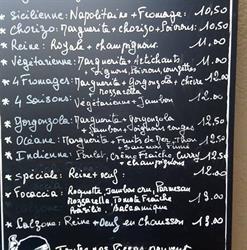 * Sicilienne: Napolitaine + Fromage: 10,50
* Chorizo: Marguerita + chorizo + Poivrons: 10,50
* Reine: Royale + champignons. 11.00
* Végétarienne: Marguerita + Artichauts
+ Oignons, Poivrons, courgettes 11.00
* 4 Fromages: Marguerita + Gorgonzola + chèvre
Mozzarella 12.00
* 4 Saisons: Végétarienne + Jambon 12.00
* Gorgonzola: Marguerita + Gorgonzola
+ Jambon + oignons rouges 12.00
* Océane: Marguerita + Fruits de Mer, Thon
12.50
* Indienne: Poulet, Crème Fraîche, Curry
+ champignons 12.50
* Spéciale: Reine + oeuf: 12.00
* Focaccia: Roquette, Jambon cru, Parmesan
Mozzarella, Tomate Fraîche
Balsamique 13.00
* Calzone: Reine + Oeuf en Chausson 13.00
Toutes nos Pizzas peuvent